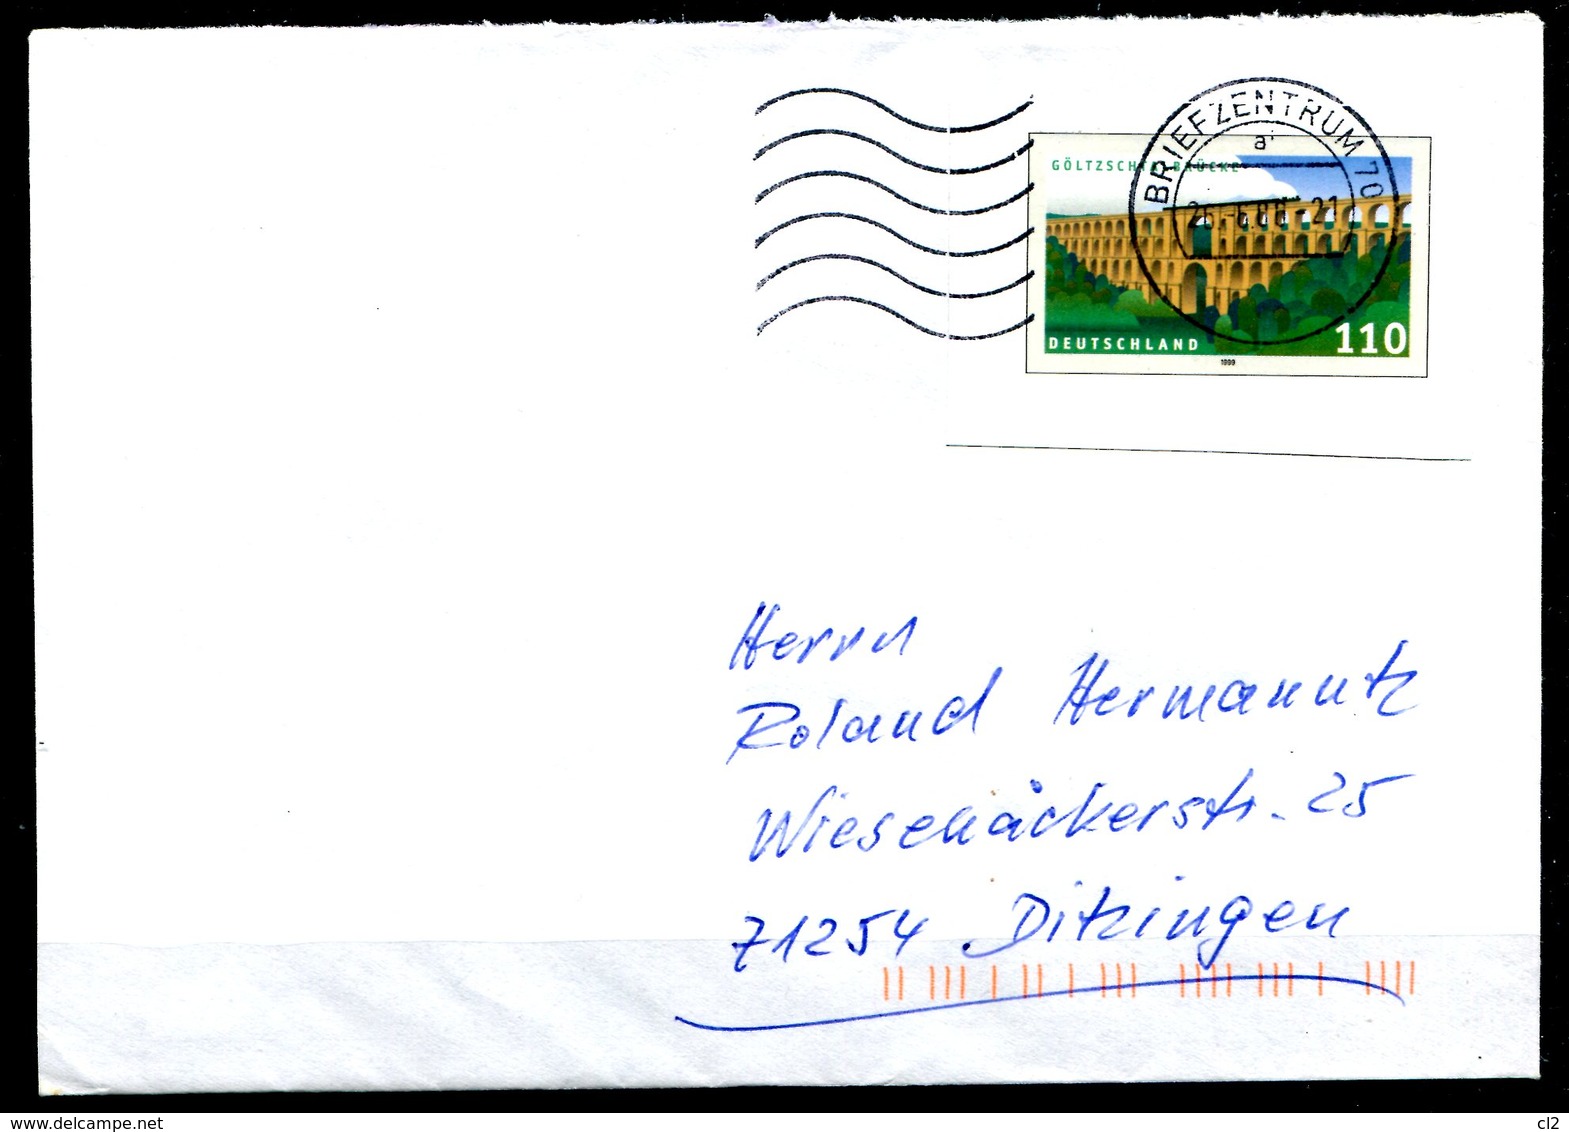 BRIEFZENTRUM 70
ai
GÖLTZSCHTALBRÜCKE
-21
DEUTSCHLAND
110
1999
Herrn
Roland Hermannutz
Wiesenäckerstr. 25
71254 Ditzingen
www.delcampe.net
cl2